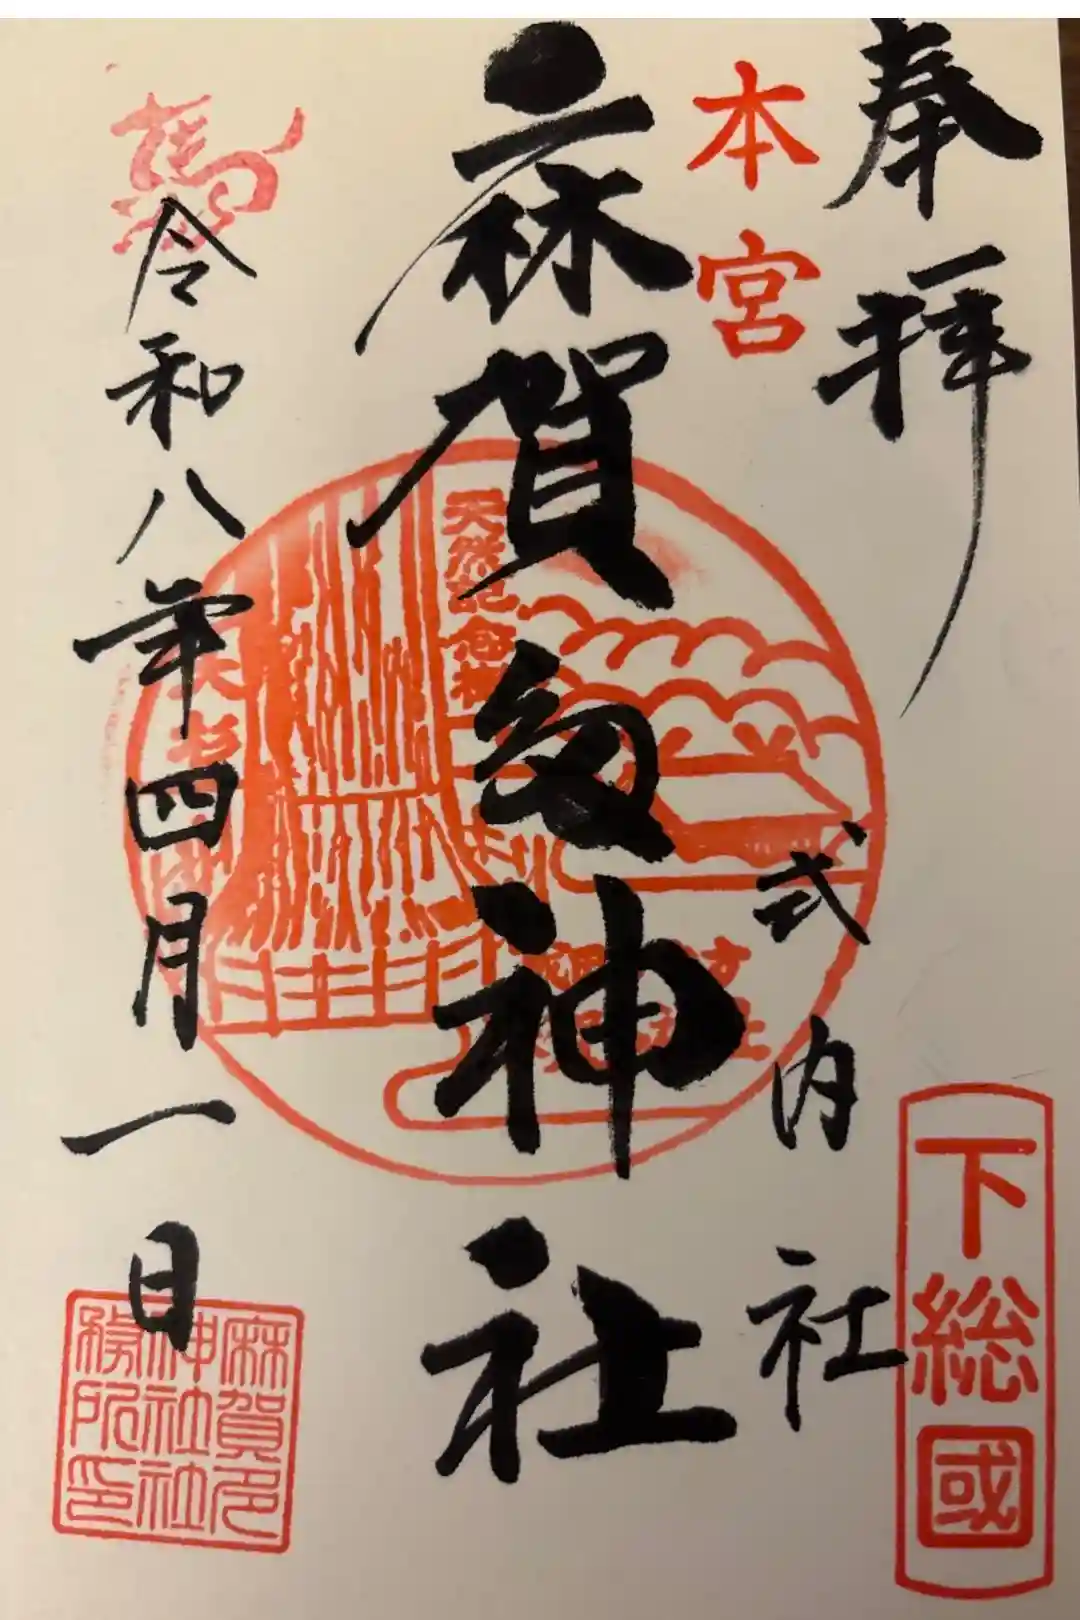 奉拝
本宮
式内社
下総國
麻賀多神社
天然記念物
大杉
令和八年四月一日
麻賀多
神社社
務所印